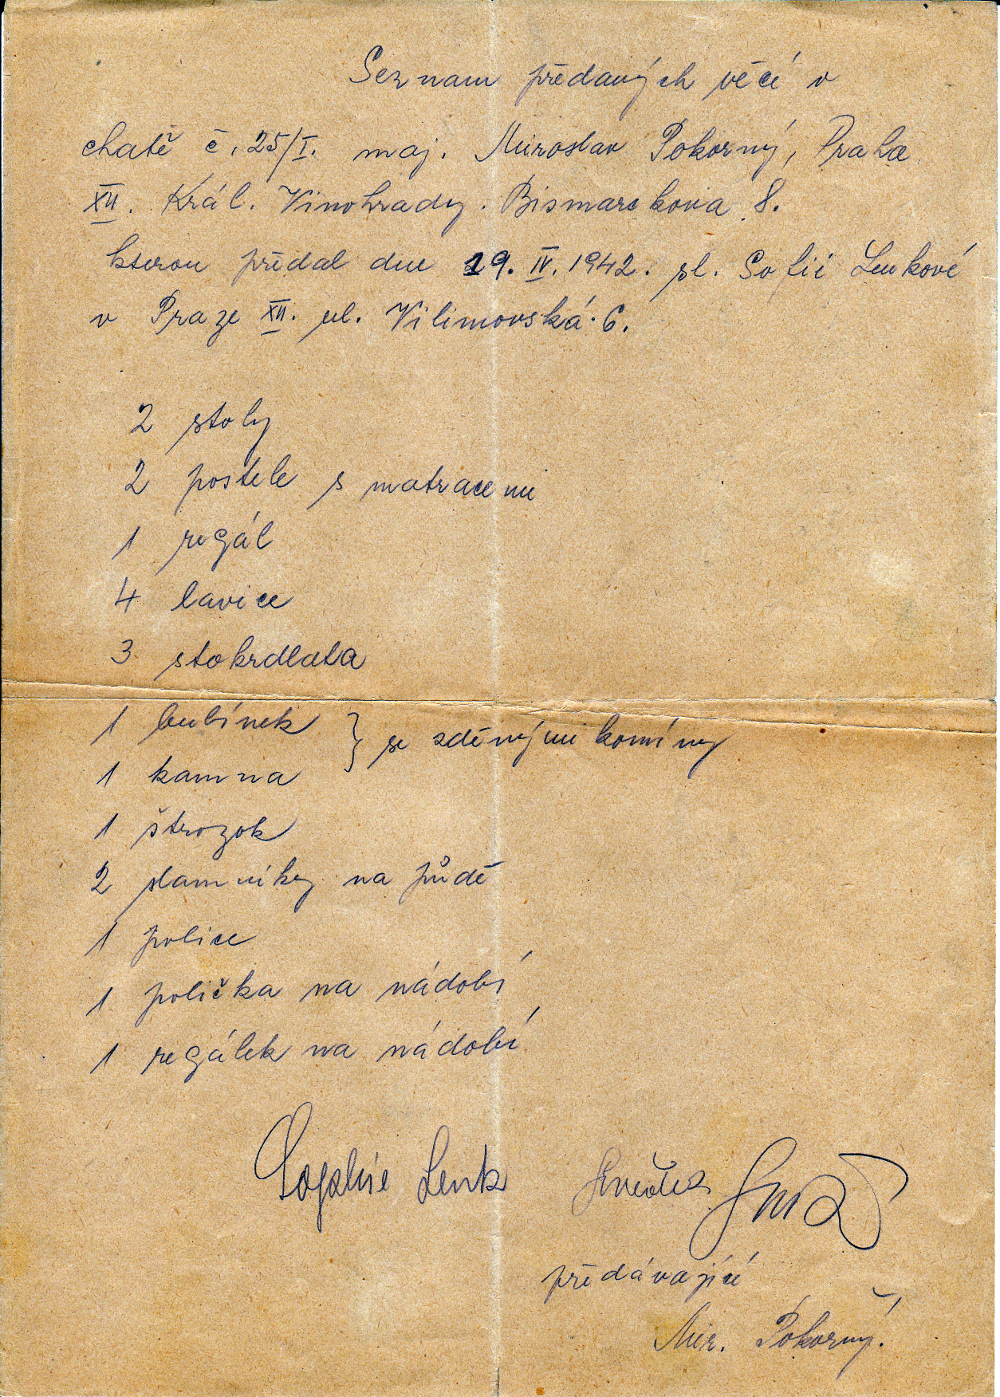 Seznam předaných věcí v
chatě č. 25/I. maj. Miroslav Pokorný, Praha
XII. Král. Vinohrady. Bismarckova 8.
kterou předal dne 19. IV. 1942. sl. Sofii Lenkové
v Praze XII. ul. Vilimovská. 6.
2 stoly
2 postele s matracemi
1 regál
4 lavice
3 stokrdlata
1 bubínek } se zděnými komíny
1 kamna
1 štrozok
2 slamníky na půdě
1 police
1 polička na nádobí
1 regálek na nádobí
Sophie Lenk
předávající
Mir. Pokorný.